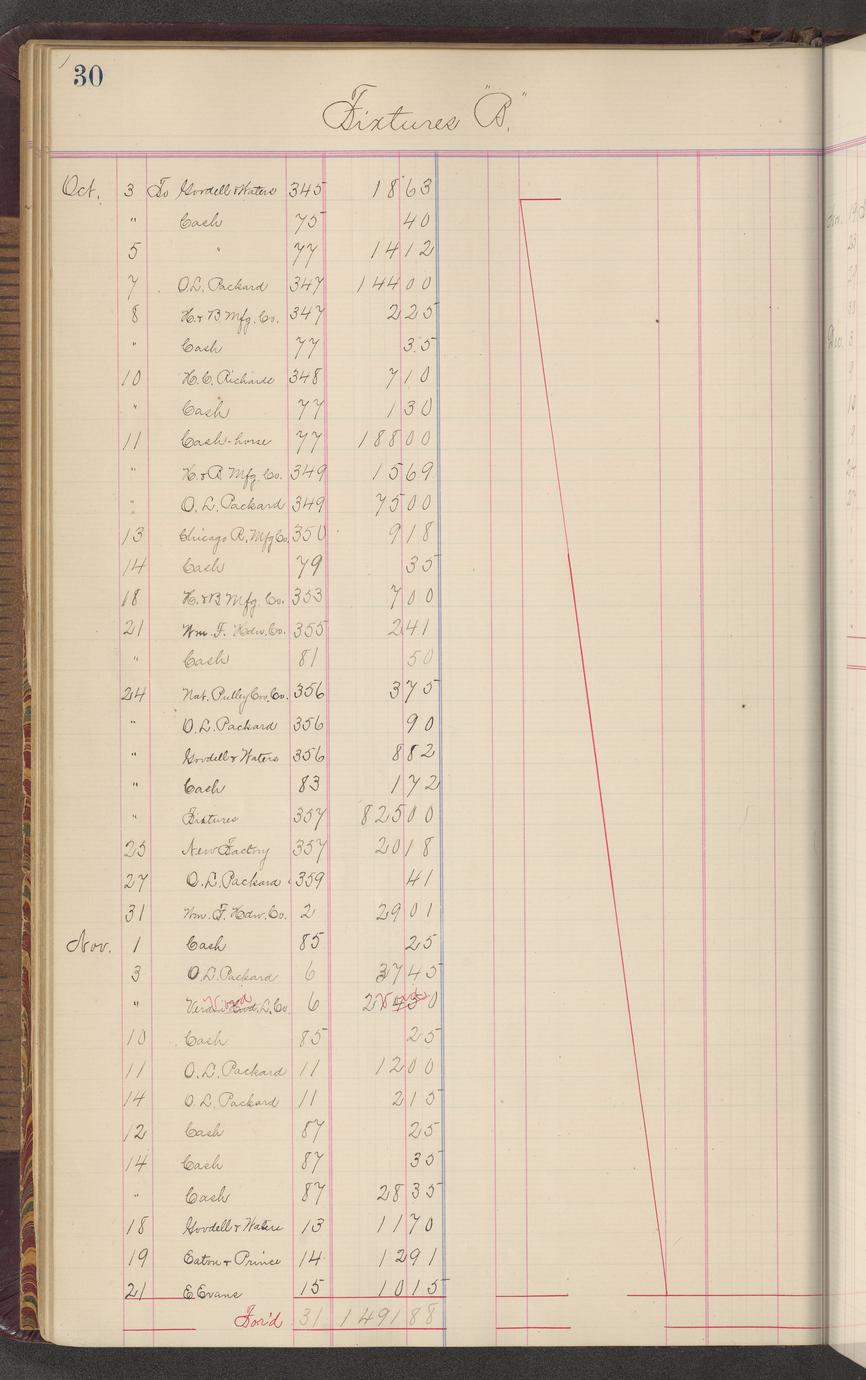 30
Fixtures "B."
Oct. 3 To Goodell & Waters 345 18 63
" Cash 75 40
5 " 77 14 12
7 O.L. Packard 347 144 00
8 H. & B Mfg. Co. 347 2 25
" Cash 77 3 5
10 H.C. Richards 348 7 10
" Cash 77 1 30
11 Cash-horse 77 188 00
" H. & B. Mfg. Co. 349 15 69
" O.L. Packard 349 75 00
13 Chicago R. Mfg Co. 350 9 18
14 Cash 79 35
18 H. & B Mfg. Co. 353 7 00
21 Wm. F. Hdw. Co. 355 2 41
" Cash 81 50
24 Nat. Pulley Cov. Co. 356 3 75
" O.L. Packard 356 90
" Goodell & Waters 356 8 82
" Cash 83 1 72
" Fixtures 357 825 00
25 New Factory 357 20 18
27 O.L. Packard 359 41
31 Wm. F. Hdw. Co. 2 29 01
Nov. 1 Cash 85 25
3 O.L. Packard 6 37 45
" L. Co. 6
10 Cash 85 25
11 O.L. Packard 11 12 00
14 O.L. Packard 11 2 15
12 Cash 87 25
14 Cash 87 35
" Cash 87 28 35
18 Goodell & Waters 13 11 70
19 Eaton & Prince 14 12 91
21 E. Evans 15 10 15
For'd 31 1491 88